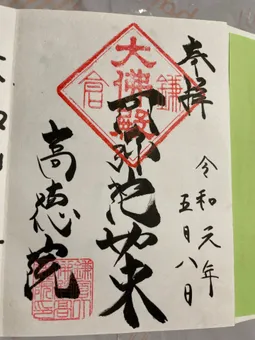 奉拝
令和元年
五月八日
鎌倉
大佛殿
阿弥陀如来
高徳院